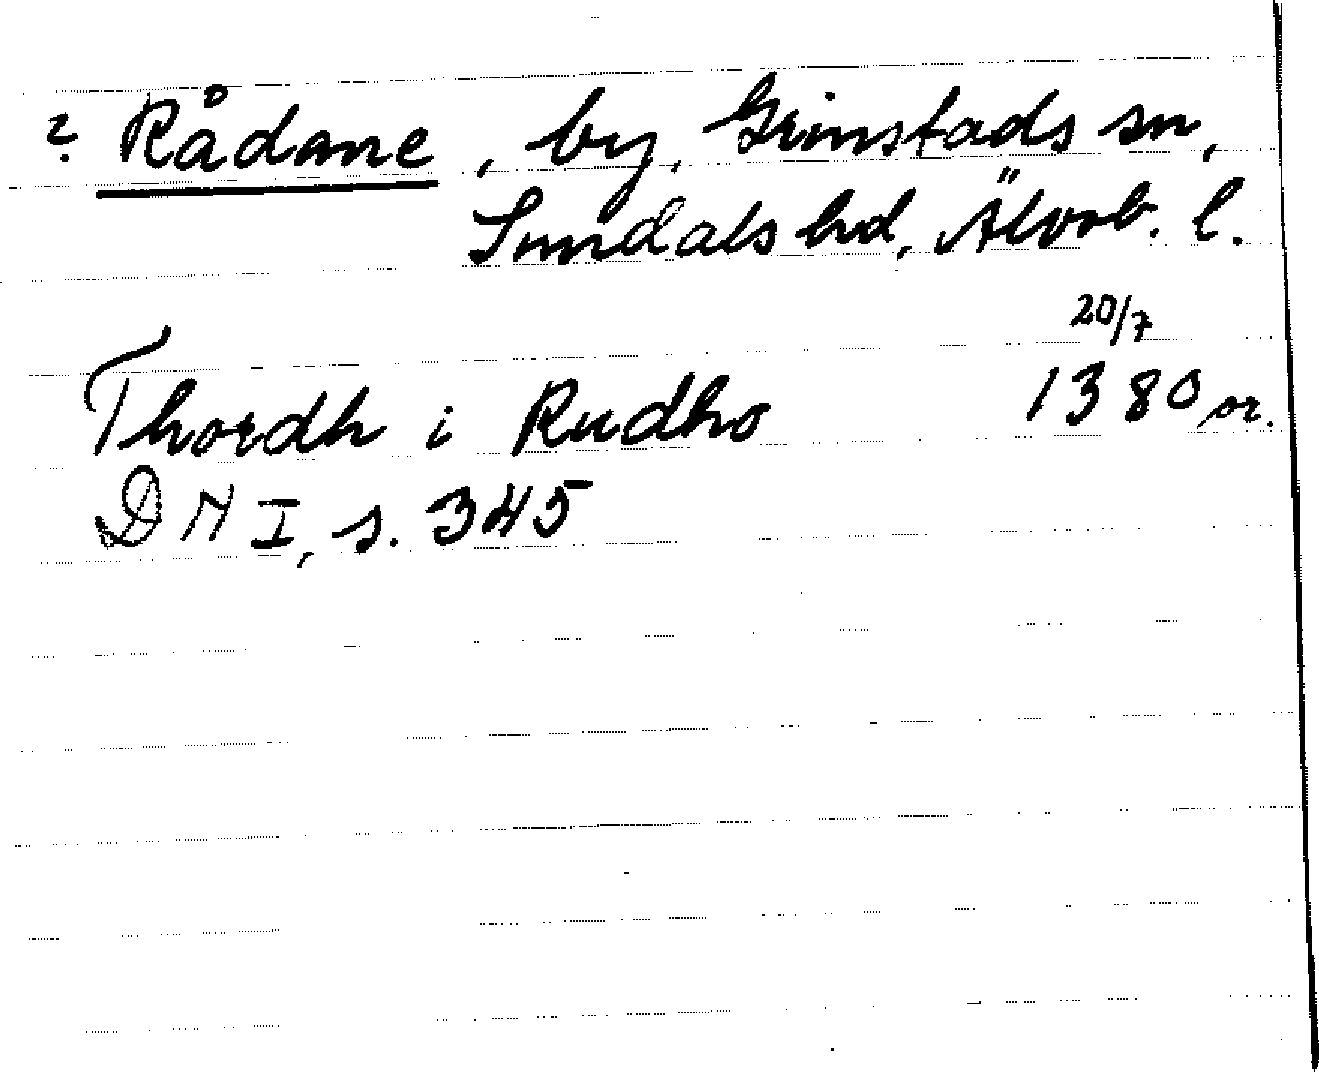 ? Rådane, by, Grinstads sn,
Sundals hd, Älvsb. l.
20/7
Thordh i Rudho 1380 or.
DN I, s. 345